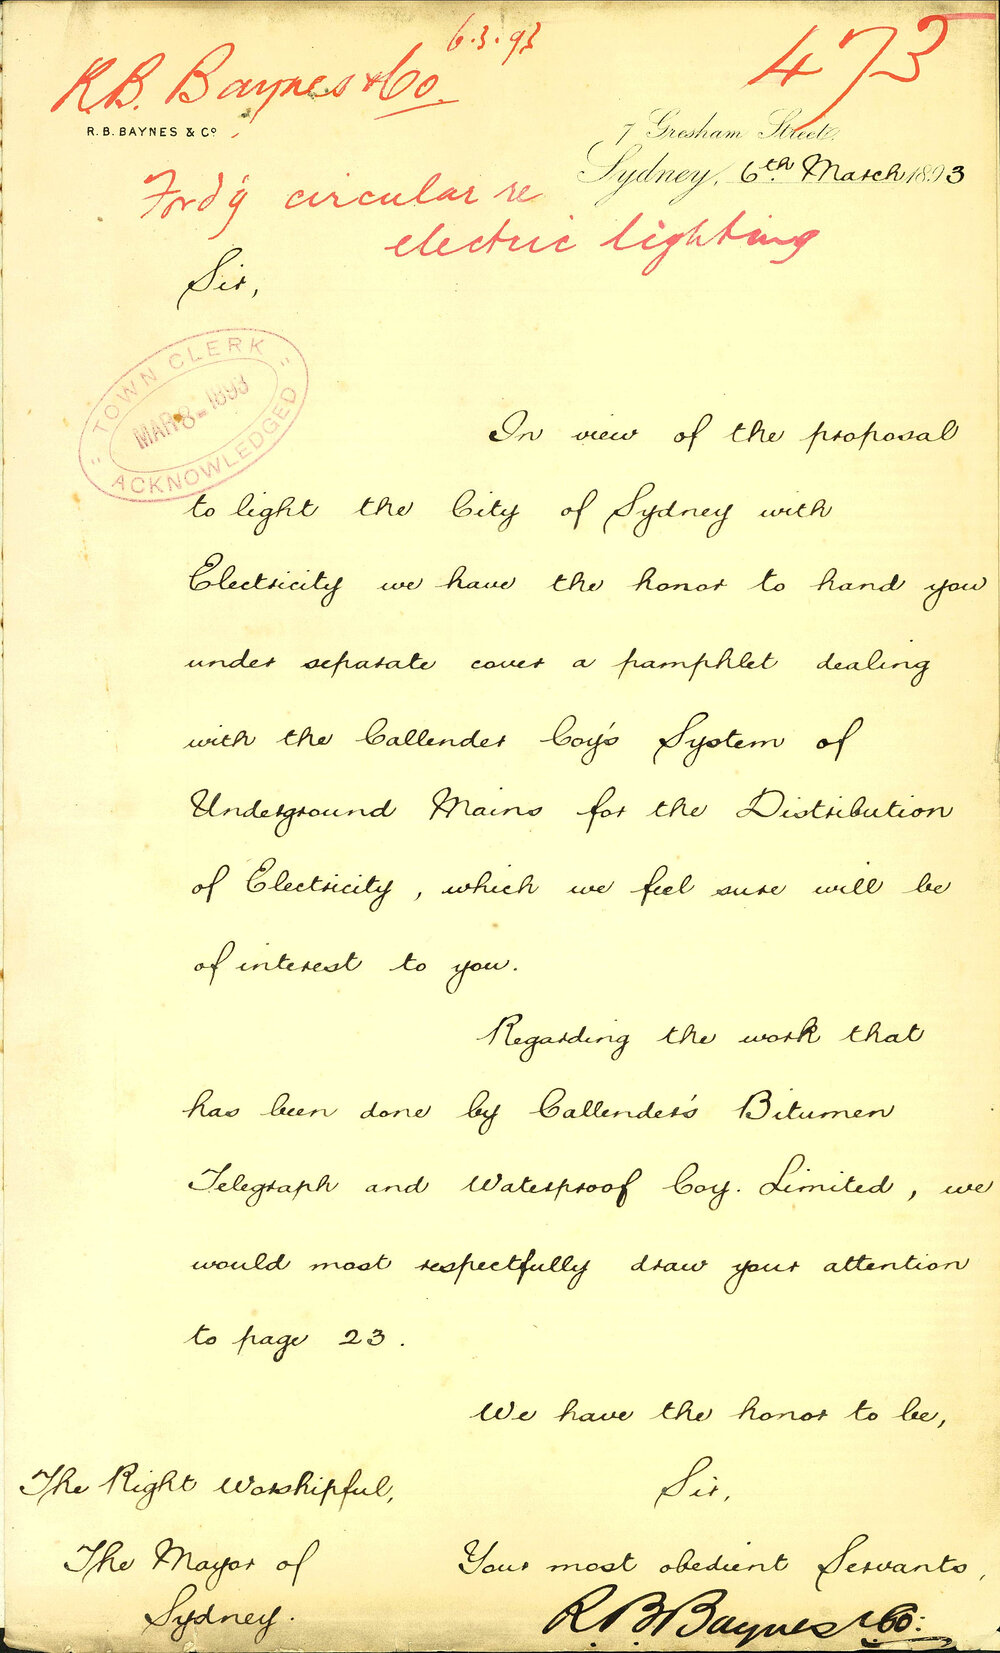 6.3.93
473
R.B. Baynes & Co.
R. B. BAYNES & Co
7 Gresham Street,
Sydney, 6th March 1893
Ford'g circular re
electric lighting
Sir,
TOWN CLERK
MAR 8-1893
ACKNOWLEDGED
In view of the proposal
to light the City of Sydney with
Electricity we have the honor to hand you
under separate cover a pamphlet dealing
with the Callender Coy's System of
Underground Mains for the Distribution
of Electricity, which we feel sure will be
of interest to you.
Regarding the work that
has been done by Callender's Bitumen
Telegraph and Waterproof Coy. Limited, we
would most respectfully draw your attention
to page 23.
We have the honor to be,
Sir,
Your most obedient Servants,
R. B. Baynes & Co:
The Right Worshipful,
The Mayor of
Sydney.